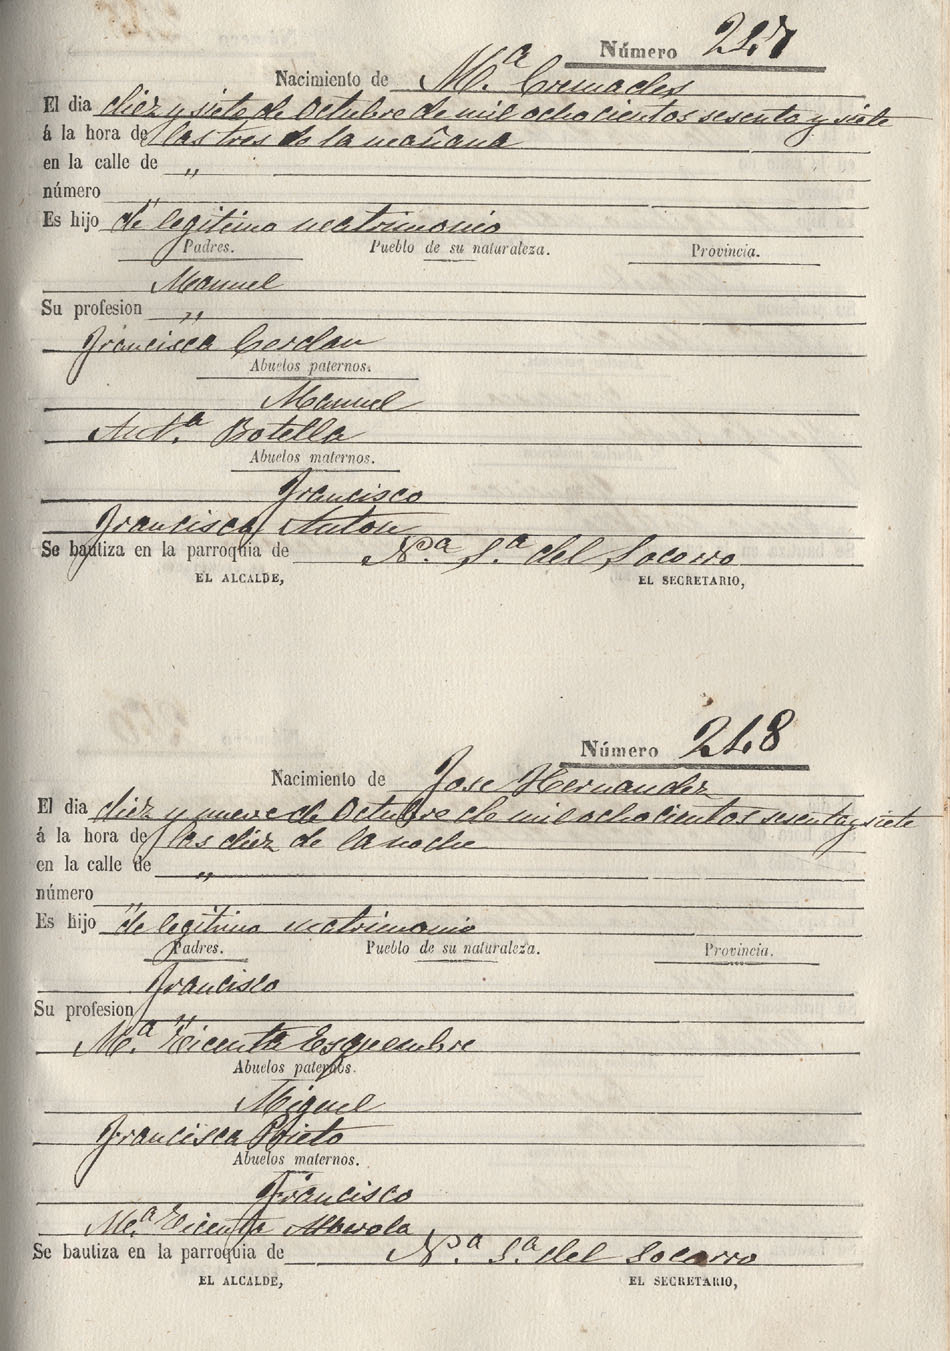 Número 247
Nacimiento de Mª Cremades
El dia diez y siete de Octubre de mil ochocientos sesenta y siete
á la hora de las tres de la mañana
en la calle de "
número "
Es hijo de legitimo matrimonio
Padres. Pueblo de su naturaleza. Provincia.
Manuel
Su profesion "
Francisca Cerdan
Abuelos paternos.
Manuel
Antª Botella
Abuelos maternos.
Francisco
Francisca Anton
Se bautiza en la parroquia de Nª Sª del Socorro
EL ALCALDE, EL SECRETARIO,
Número 248
Nacimiento de Jose Hernandez
El dia diez y nueve de Octubre de mil ochocientos sesenta y siete
á la hora de las diez de la noche
en la calle de "
número "
Es hijo de legitimo matrimonio
Padres. Pueblo de su naturaleza. Provincia.
Francisco
Su profesion "
Mª Vicenta Esquembre
Abuelos paternos.
Miguel
Francisca Prieto
Abuelos maternos.
Francisco
Mª Vicenta Alberola
Se bautiza en la parroquia de Nª Sª del Socorro
EL ALCALDE, EL SECRETARIO,